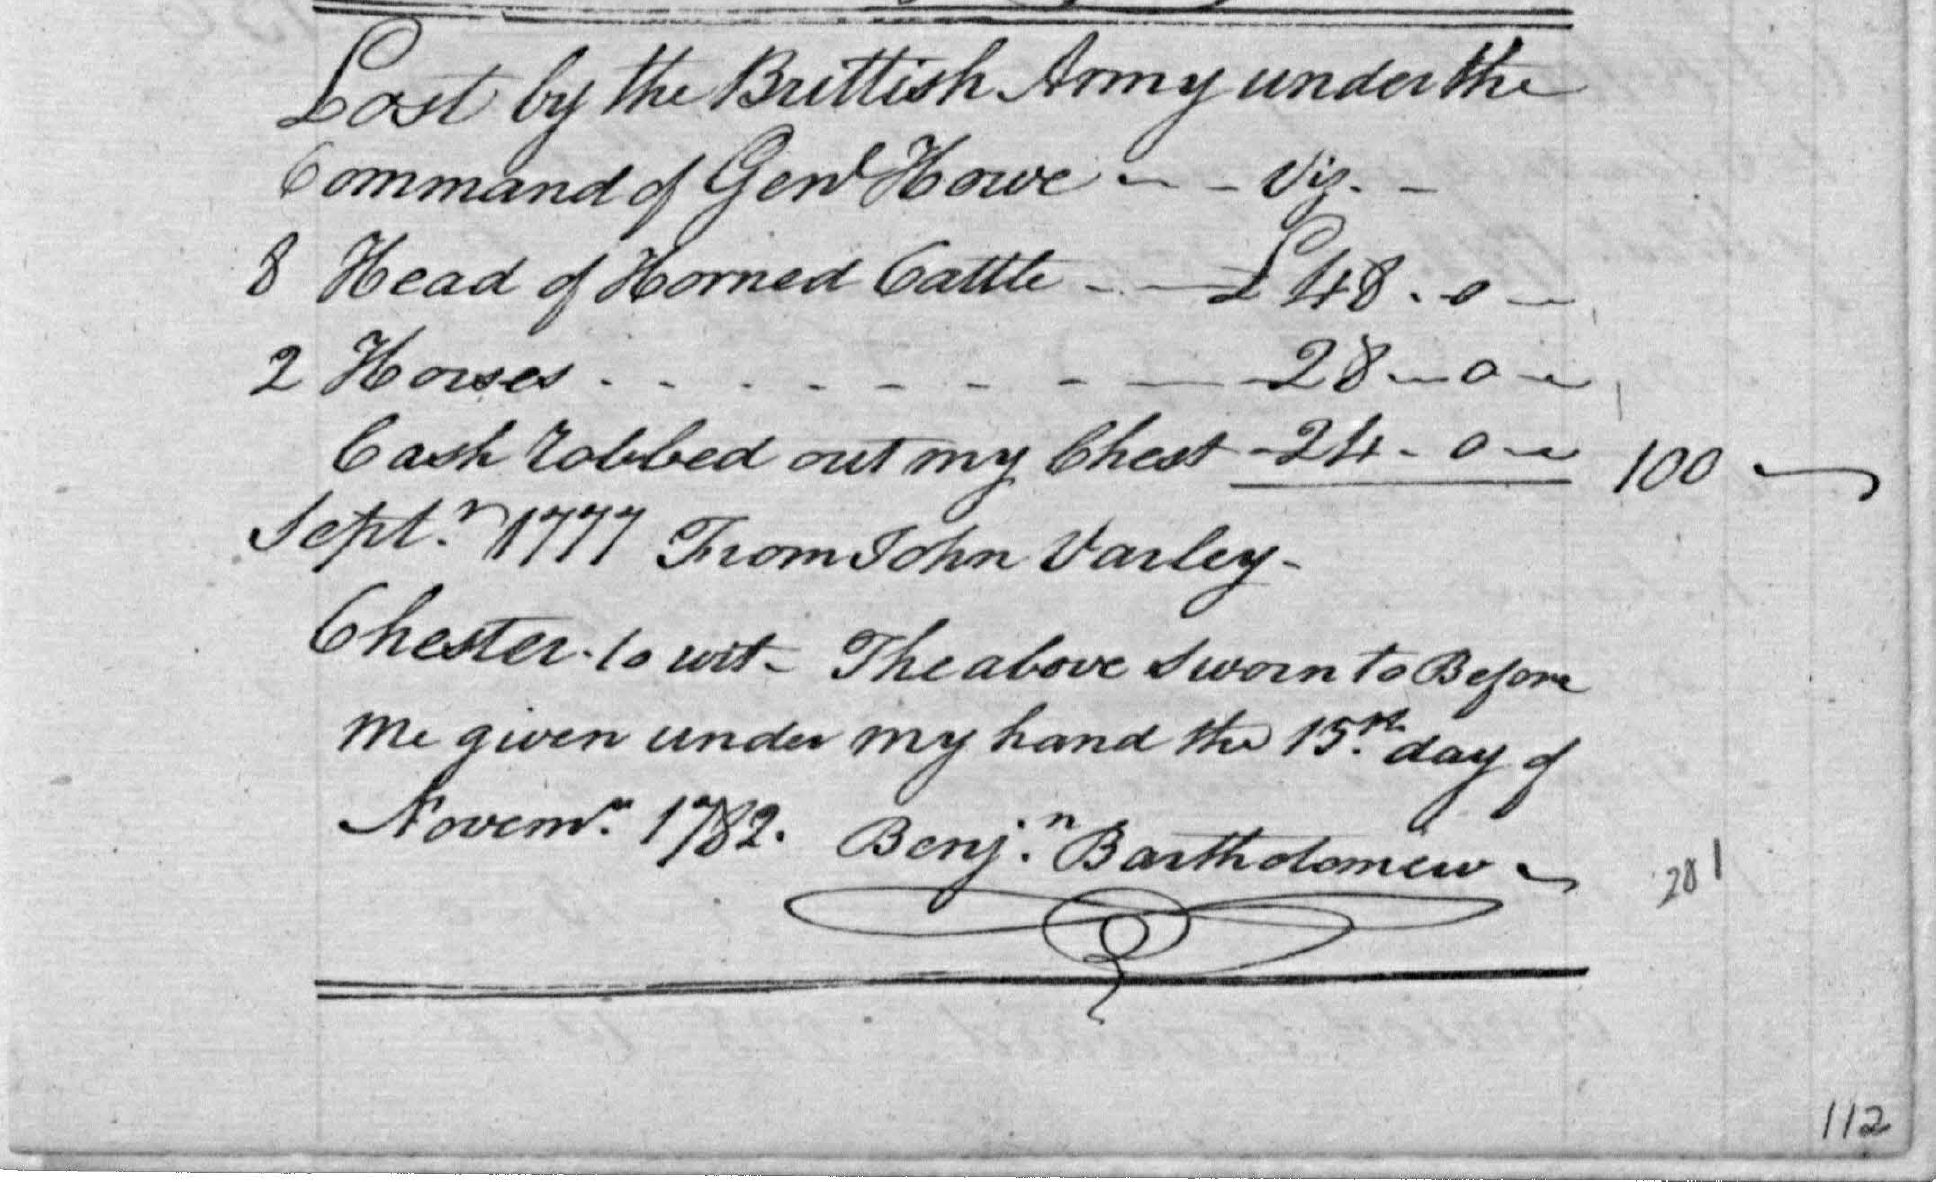 Lost by the Brittish Army under the
Command of Genl Howe - - - Viz. -
8 Head of Horned Cattle - - £48 . 0 -
2 Horses . . . . . - - - - 28 - 0 -
Cash robbed out my Chest - 24 - 0 - 100 -
Sept.r 1777 From John Varley -
Chester. to wit - The above Sworn to Before
Me given under my hand the 15.th day of
Novemr. 1782. Benj.n Bartholomew -
281
112